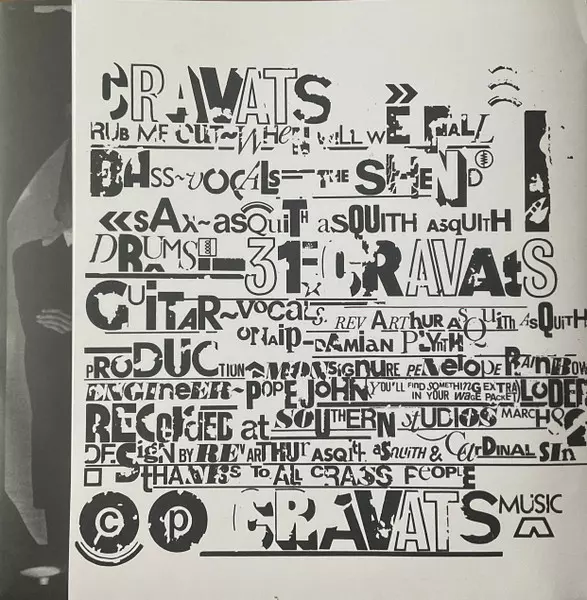 CRAVATS
RUB ME OUT~WHeN WILL WE FALL
BAss~vOCALs—THE SHEND
«sAx~asQuiTH asQUITH AsQuITH
DRUMS
3 CRAVAtS
GUITAR~vocaLs. REV ARTHUR ASQuith AsQuITH
OR
PRODUCTION MONsIGnURE PENelopE RAINBOW
ENGIneER~POPE JOHN (YOU'LL FIND SOMETHING EXTRA IN YOUR WaGE PACKET) LODER
RECORDED at SOUTHERN sTUDIOS MARCH 82
DESIGN BY REV ARTHUR ASQIth asquITH & CARDINAL SIN
thANKS To ALL CRASS PEOPLE
© ℗ CRAVATS MUSIC